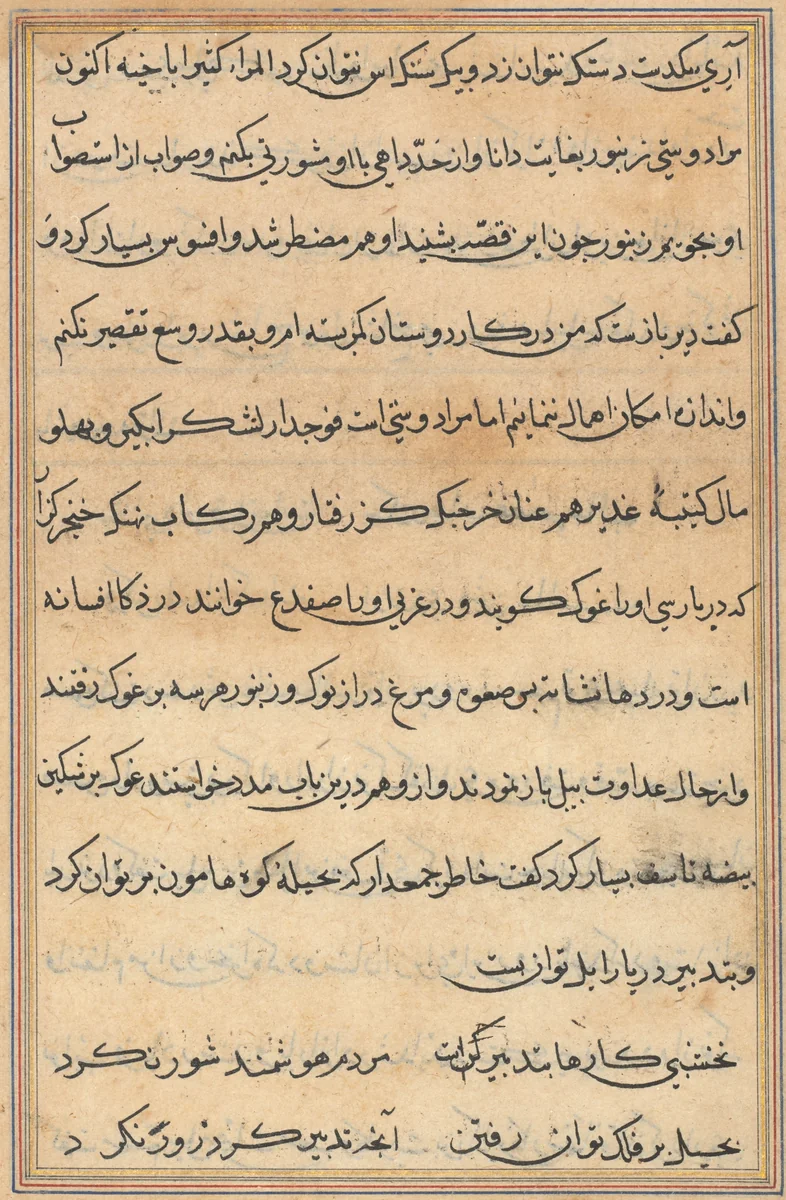 آری بیکدست دستک نتوان زد و بیک سنک اس نتوان کرد المراء کثیرا باخیه اکنون
مرا دوستی زنبور بغایت دانا و از حدّ داهی با او مشورتی بکنم و صواب از استصواب
او بجویم زنبور جون این قصّه بشنید او هم مضطر شد و افسوس بسیار کرد و
کفت دیر بازست که من در کار دوستان کمر بسته ام و بقدر وسع تقصیر نکنم
و اندازه امکان اهمال ننمایم اما مرا دوستی است فوجدار لشکر ابکیر و پهلو
مال کیتبهٔ غدیر هم عنان خرخنک کز رفتار و هم رکاب نهنک خنجر کزار
که در بارسی او را غوک کویند و در عربی او را صفدع خوانند در ذکا افسانه
است و در دها نشانه بس صعوه و مرغ دراز نوک و زنبور هر سه بر غوک رفتند
و از حال عداوت بیل باز نمودند و از و هم درین باب مدد خواستند غوک بر شکستن
بیضه تاسف بسیار کرد کفت خاطر جمعدار که بحیلهٔ کوه هامون بر توان کرد
و بتدبیر دریا را بل توان بست
نخشبی کارها بتدبیر کن است مردم هوشمند شور نکرد
بحیل بر فلک توان رفتن آنجه تدبیر کرد زور نکرد